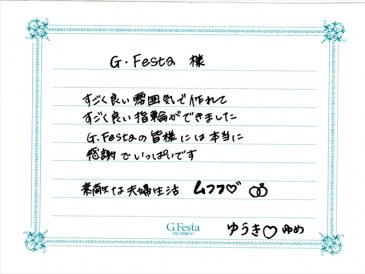 G.Festa 様
すごく良い雰囲気で作れて
すごく良い指輪ができました
G.Festaの皆様には本当に
感謝でいっぱいです
素敵な夫婦生活 ムフフ♡
G.Festa
ゆうき♡ゆめ